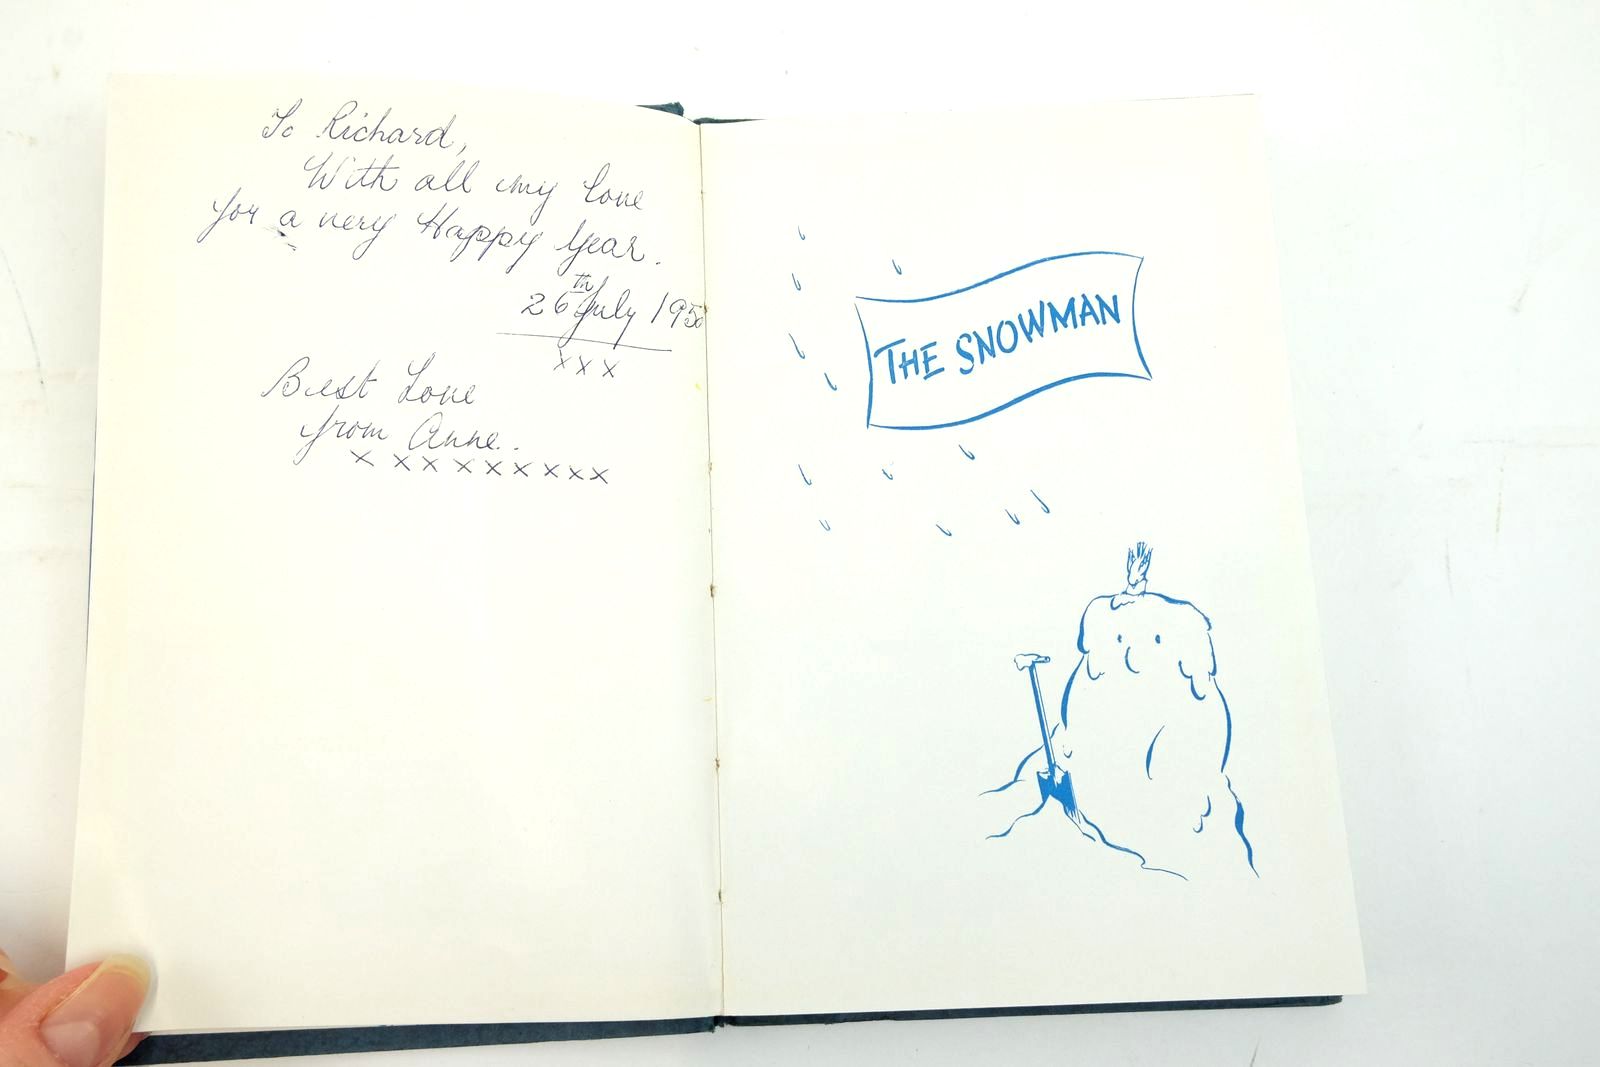 To Richard,
With all my love
for a very Happy Year.
26th July 1950
x x x
Best Love
from Anne..
x x x x x x x x x
THE SNOWMAN